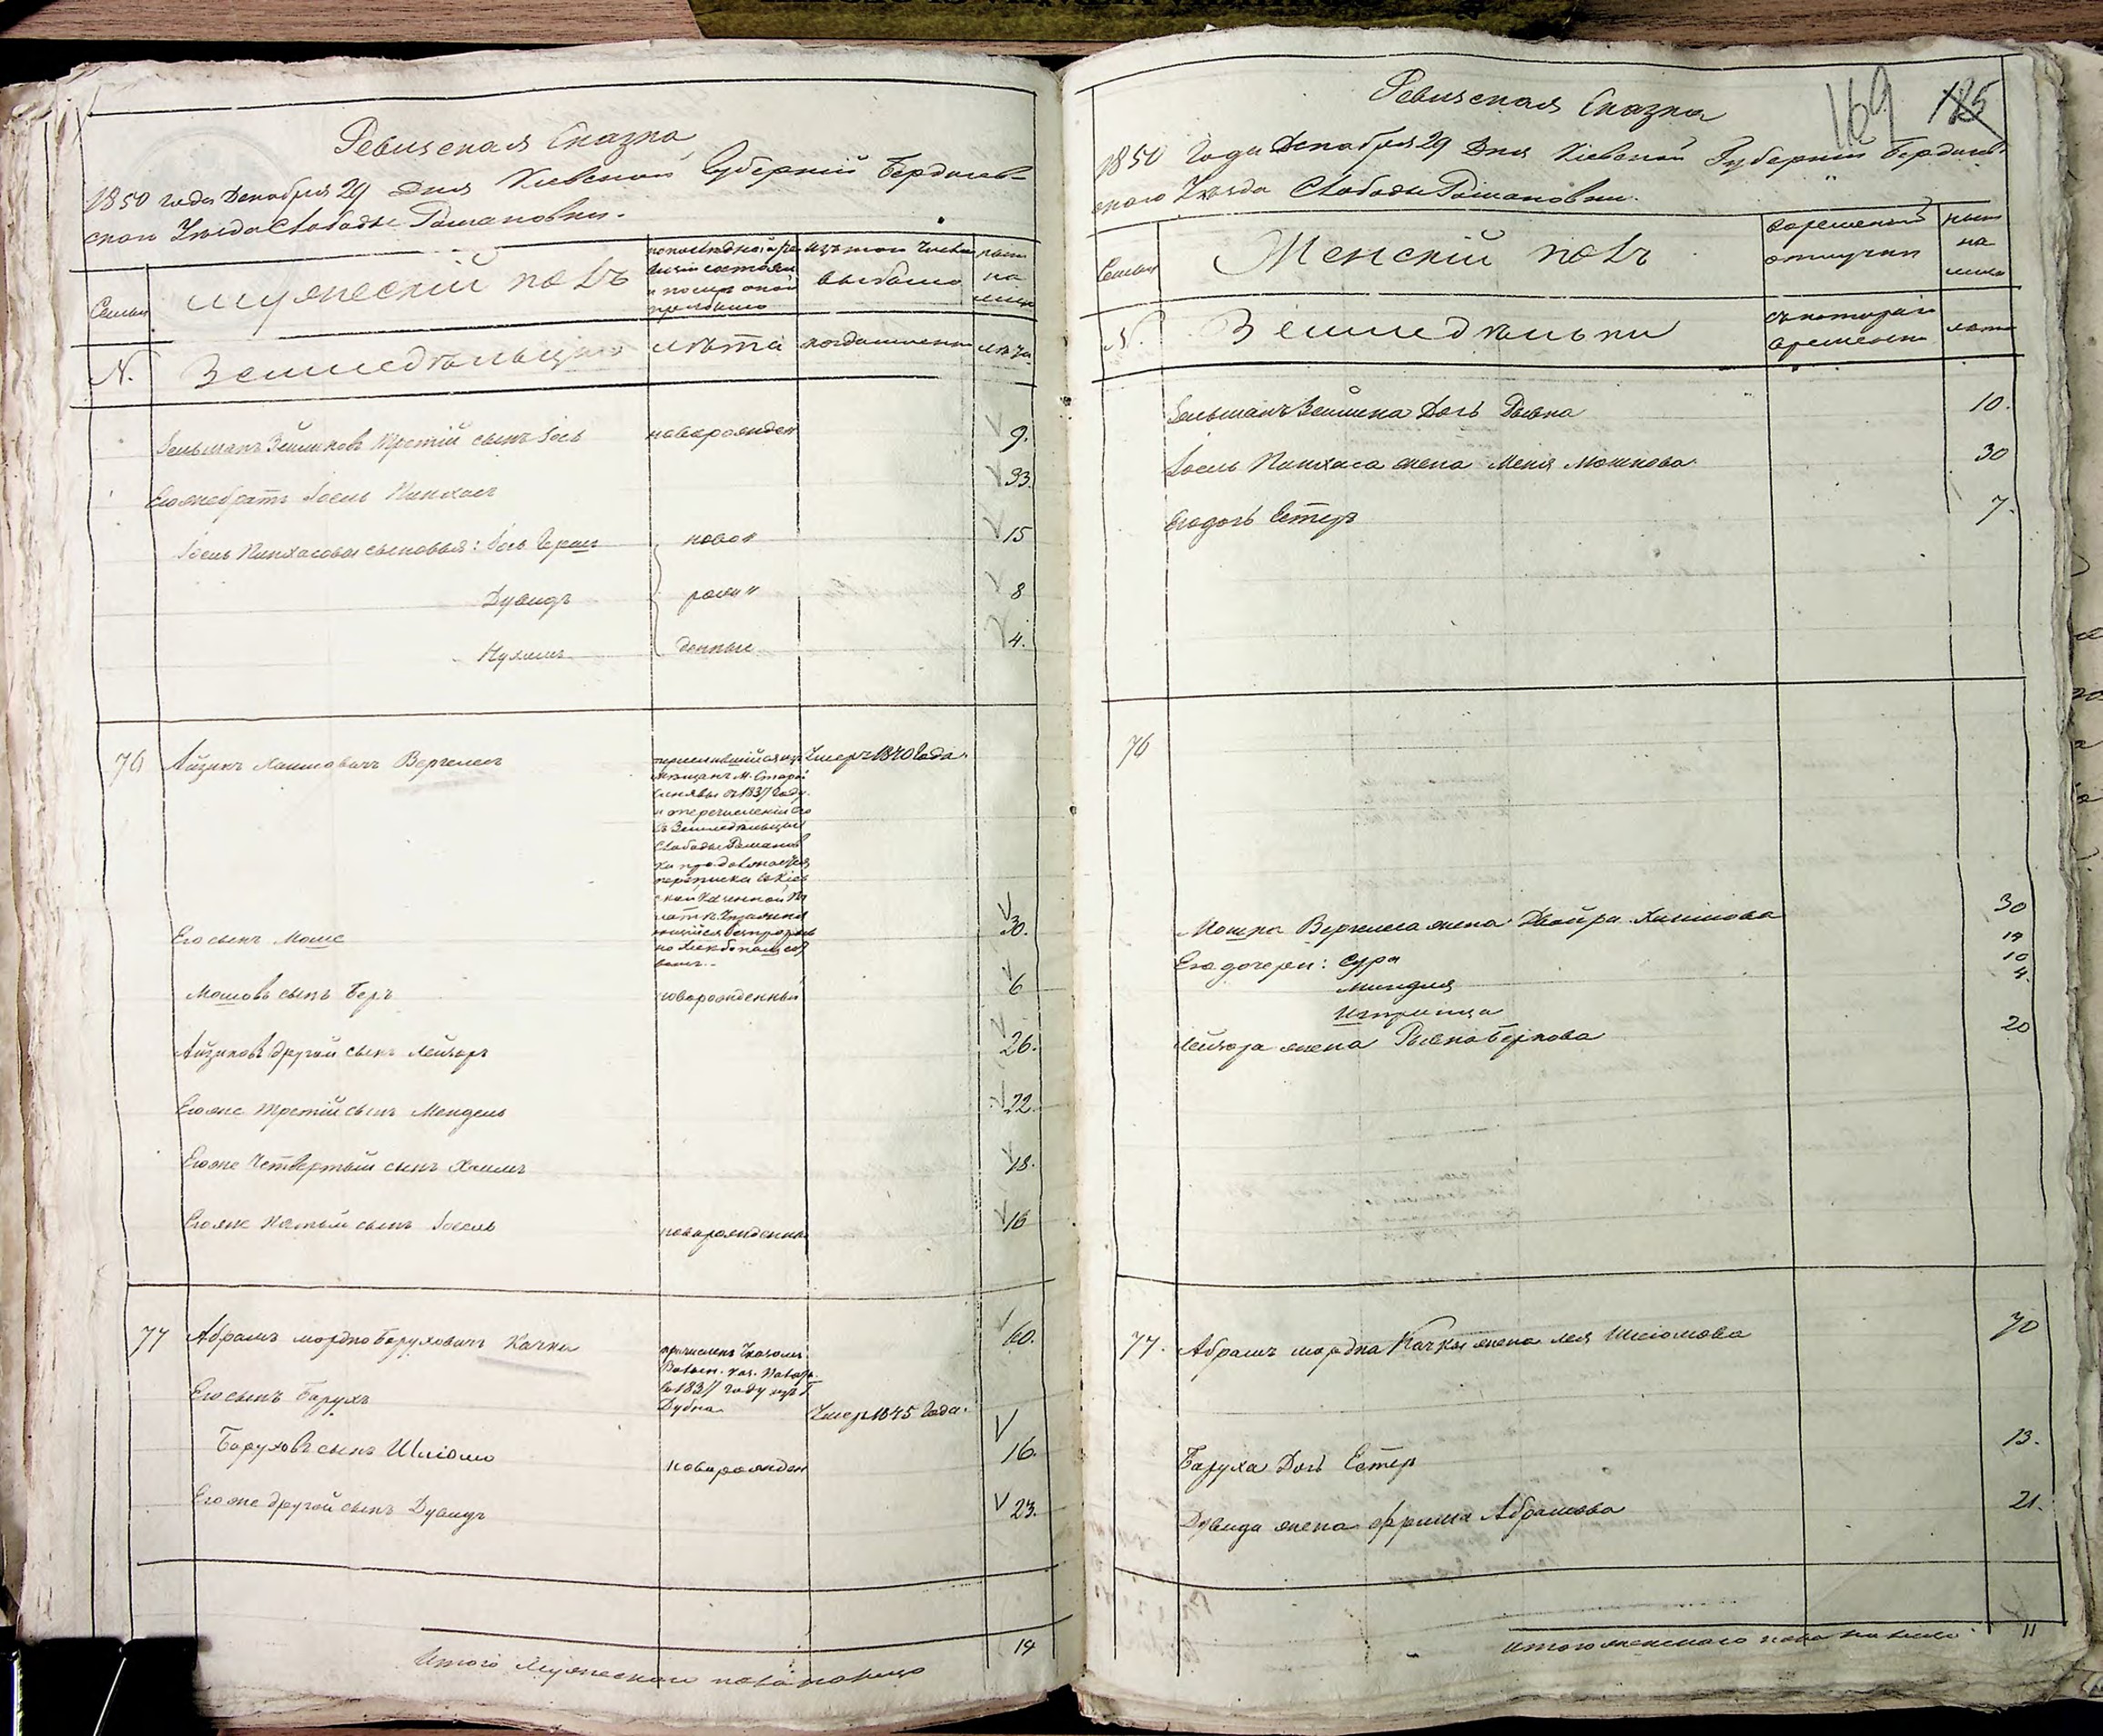 Ревизская Сказка
1850 года Декабря 29 Дня Киевской Губернии Бердичев-
скаго Уѣзда Слободы Романовки.
Семьи
Мужескій полъ
по последней ре
визіи состояло
и после оной
прибыло
изъ того числа
выбыло
ныне
на
лицо
N.
Земледѣльцы
лѣта
когда именно
лѣта
Зельманъ Зейликовъ третій сынъ Іось
новорожден
9.
Его же братъ Іосель Пинхасъ
33.
Іосель Пинхасовы сыновья: Іось Герш
ново
15
Дувидъ
рож
8
Нухимъ
денные
4.
76
Айзикъ Хаимовичъ Вергелесъ
переселившійся изъ
мѣщанъ М. Старой
Синявы въ 1837 году
о перечисленіи его
въ Земледѣльцы
Слободы Романов
ка продолжается
переписка въ Кіев
ской Казенной Па
латѣ.
Умеръ 1840 Года.
Его сынъ Мошко
30.
Мошковъ сынъ Беръ
новорожденный
6
Айзиковъ другой сынъ Лейзоръ
26.
Его же третій сынъ Мендель
22.
Его же Четвертый сынъ Хаимъ
18.
Его же Пятый сынъ Іосель
новорожденный
16
77
Абрамъ Мордко Боруховичъ Качка
причисленъ Указомъ
Волын. Каз. Палаты
въ 1837 году изъ Г.
Дубна
60.
Его сынъ Борухъ
Умеръ 1845 Года.
Боруховъ сынъ Шліомо
новорожден
16.
Его же другой сынъ Дувидъ
23.
Итого Мужескаго пола на лицо
14
169 185
Ревизская Сказка
1850 Года Декабря 29 Дня Кіевской Губерніи Бердичев-
скаго Уѣзда Слободы Романовки.
Семьи
Женскій полъ
временной
отлучки
ныне
на
лицо
N.
Земледѣльки
съ котораго
времени
лѣта
Зельманъ Зейлика Дочь Рывка
10.
Іосель Пинхаса жена Меня Мошкова
30
Его дочь Естеръ
7.
76
Мошка Вергелеса жена Двойра Хаимова
30
Его дочери: Сура
14
Миндля
10
Итприпца
4.
Лейзора жена Рывка Беркова
20
77.
Абрамъ Мордка Качка жена Лея Шліомова
70
Боруха Дочь Естеръ
13.
Дувида жена Фрима Абрамова
21.
Итого женскаго пола на лицо
11